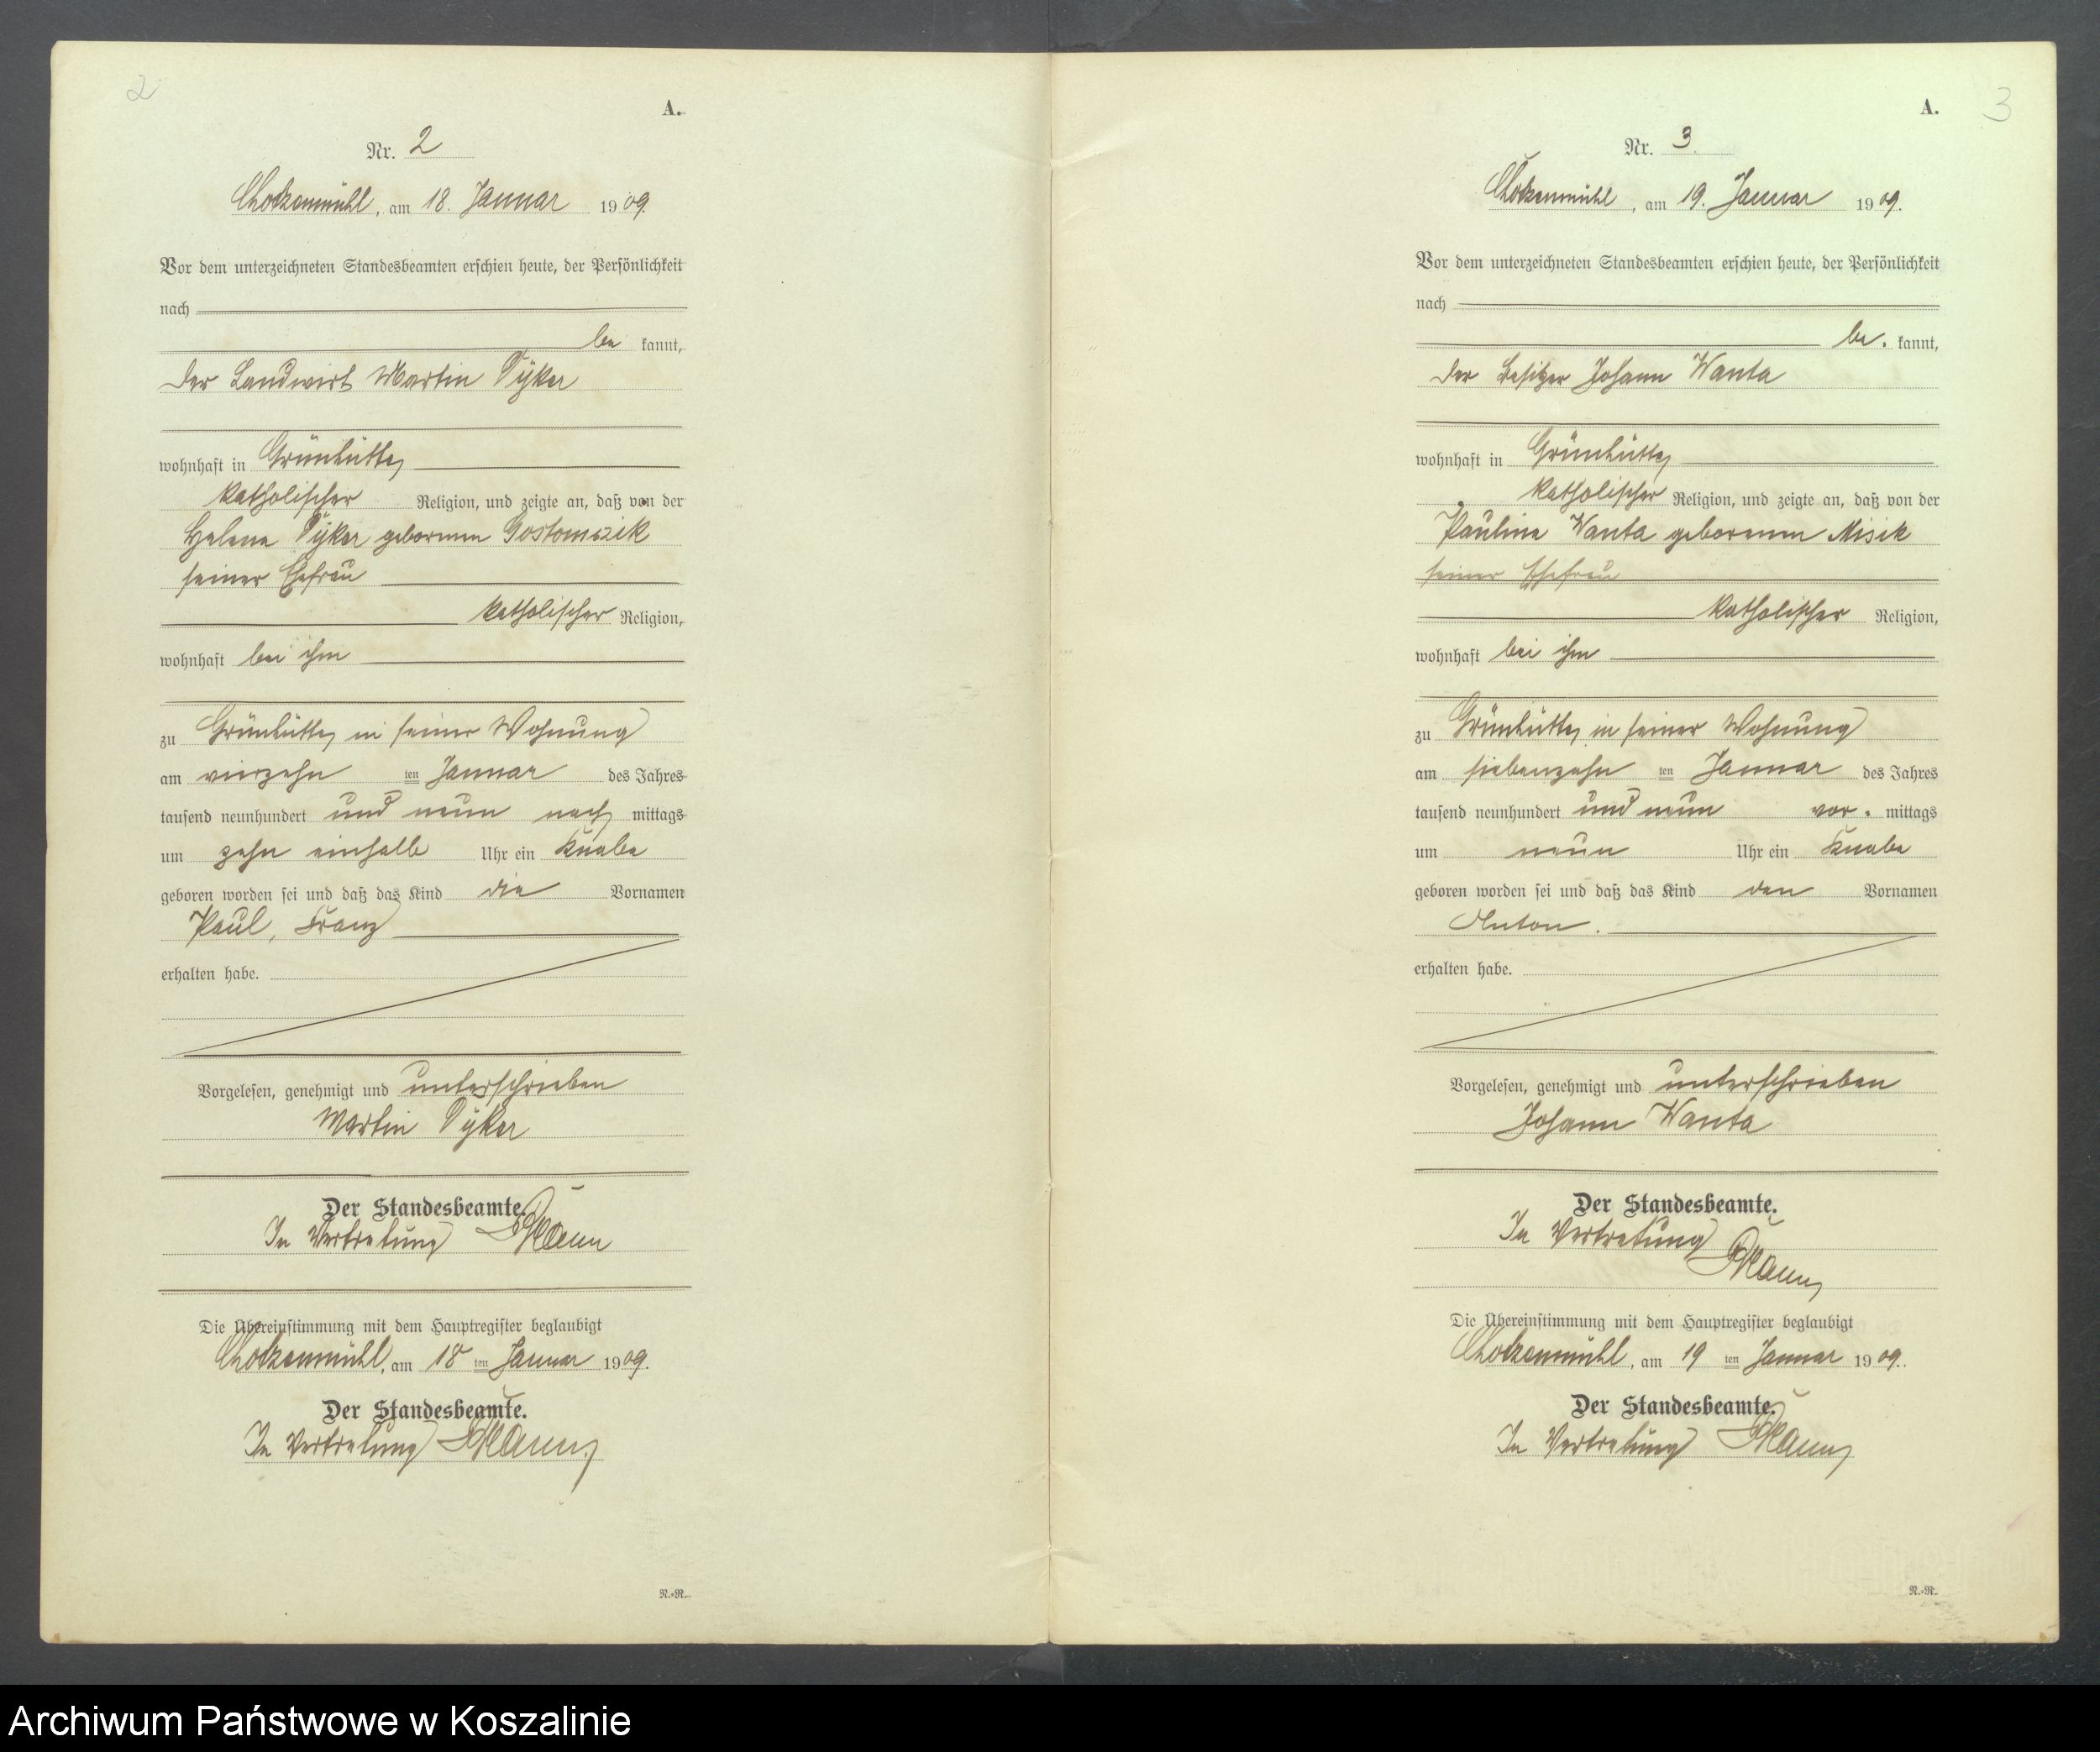 2
A.
Nr. 2
Chotzenmühl, am 18. Januar 1909.
Vor dem unterzeichneten Standesbeamten erschien heute, der Persönlichkeit
nach
be kannt,
der Landwirt Martin Pyker
wohnhaft in Grünhütte,
katholischer Religion, und zeigte an, daß von der
Helena Pyker geborenen Gostomczik
seiner Ehefrau
katholischer Religion,
wohnhaft bei ihm
zu Grünhütte, in seiner Wohnung
am vierzehn ten Januar des Jahres
tausend neunhundert und neun nach mittags
um zehn einhalb Uhr ein Knabe
geboren worden sei und daß das Kind die Vornamen
Paul, Franz
erhalten habe.
Vorgelesen, genehmigt und unterschrieben
Martin Pyker
Der Standesbeamte.
In Vertretung
Die Übereinstimmung mit dem Hauptregister beglaubigt
Chotzenmühl, am 18 ten Januar 1909.
Der Standesbeamte.
In Vertretung
N.-R.
3
A.
Nr. 3.
Chotzenmühl, am 19. Januar 1909.
Vor dem unterzeichneten Standesbeamten erschien heute, der Persönlichkeit
nach
be. kannt,
der Besitzer Johann Wanta
wohnhaft in Grünhütte,
katholischer Religion, und zeigte an, daß von der
Pauline Wanta geborenen Misik
seiner Ehefrau
katholischer Religion,
wohnhaft bei ihm
zu Grünhütte, in seiner Wohnung
am siebenzehn ten Januar des Jahres
tausend neunhundert und neun vor. mittags
um neun Uhr ein Knabe
geboren worden sei und daß das Kind den Vornamen
Anton.
erhalten habe.
Vorgelesen, genehmigt und unterschrieben
Johann Wanta
Der Standesbeamte.
In Vertretung
Die Übereinstimmung mit dem Hauptregister beglaubigt
Chotzenmühl, am 19 ten Januar 1909.
Der Standesbeamte.
In Vertretung
N.-R.
Archiwum Państwowe w Koszalinie